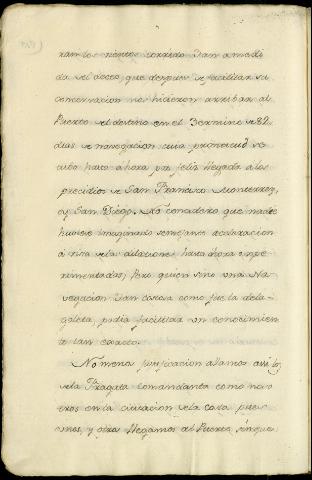 ran los vientos corrido tan a medi
da del deceo, que despues de facilitar su
concervacion nos hicieron arribar al
Puerto del destino en el termino de 82
dias de navegacion cuia promptitud se
cibo hasta ahora por feliz llegada a los
precidios de San Francisco Monterrey,
y San Diego. No considero que nadie
huviese imaginado semejante aceleracion
a vista de las dilaciones hasta ahora espe
rimentadas; Pero quien sino una Na
vegacion tan costosa como fue la de la
goleta, podia facilitar un conocimien
to tan exacto.
No menos justificacion damos assi los
de la Fragata Comandanta como noso
tros en la cituacion de la costa pues
unos, y otros llegamos al Puerto sin que